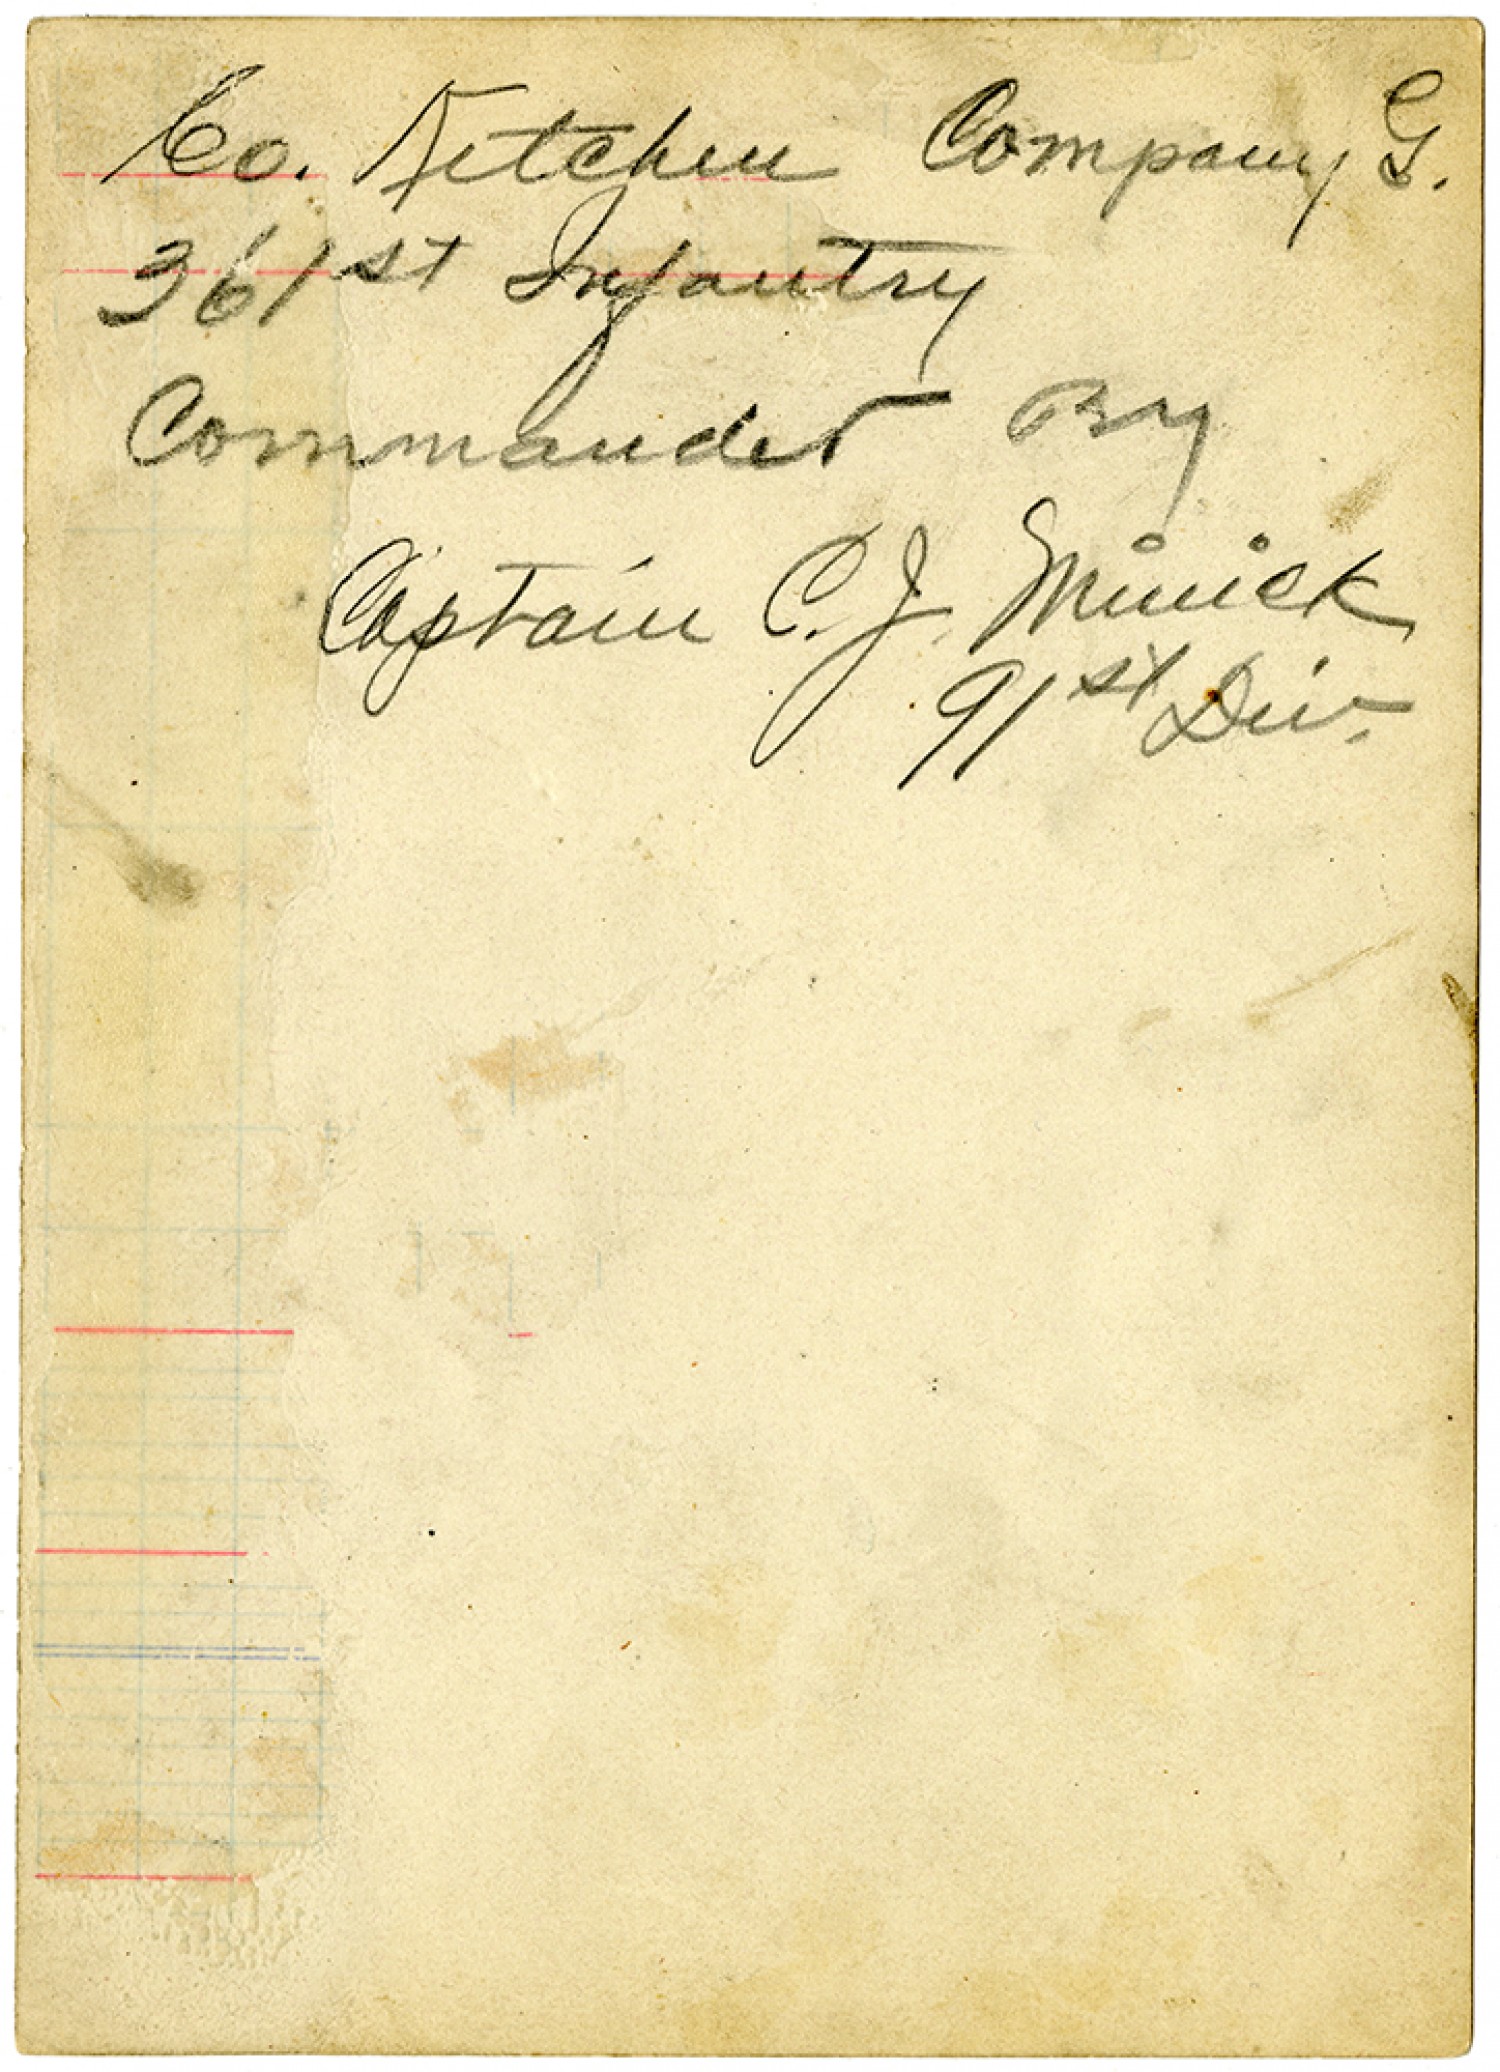 Co. Kitchen Company G.
361st Infantry
Commander By
Captain C. J. Minick
91st Div.